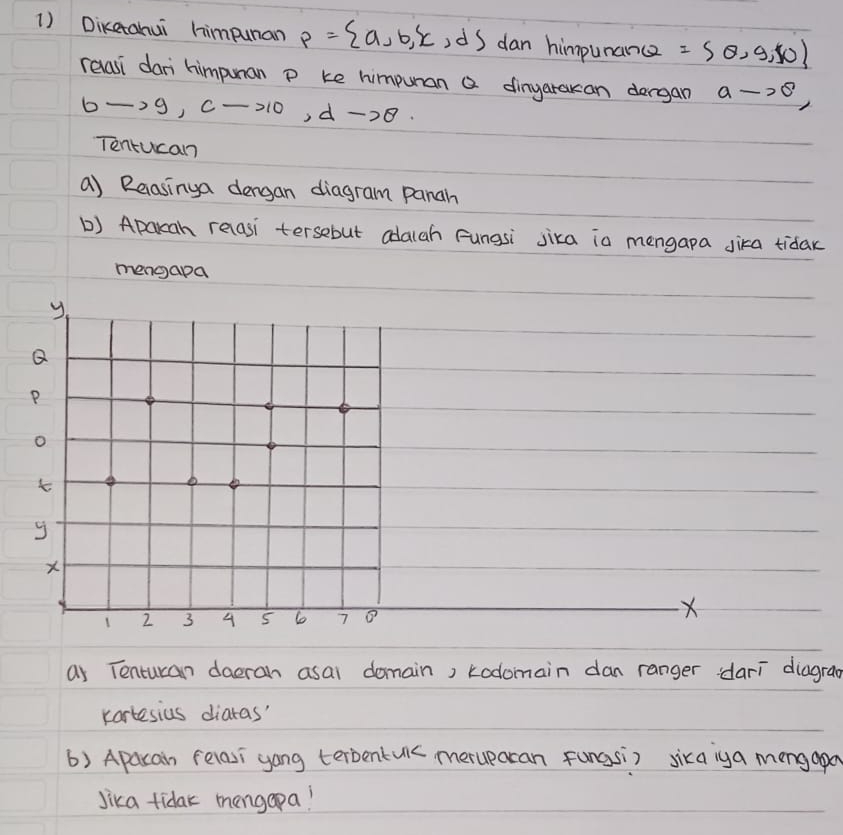 1) Diketahui himpunan P = {a, b, c, d} dan himpunan Q = {8, 9, 10}
relasi dari himpunan P ke himpunan Q dinyatakan dengan a -> 8,
b -> 9, c -> 10, d -> 8.
Tentukan
a) Relasinya dengan diagram panah
b) Apakah relasi tersebut adalah fungsi jika ia mengapa jika tidak
mengapa
y
Q
P
O
t
y
x
1 2 3 4 5 6 7 8 X
a) Tentukan daerah asal domain, kodomain dan ranger dari diagra
kartesius diatas'
b) Apakah relasi yang terbentuk merupakan fungsi? jika iya mengapa
Jika tidak mengapa!